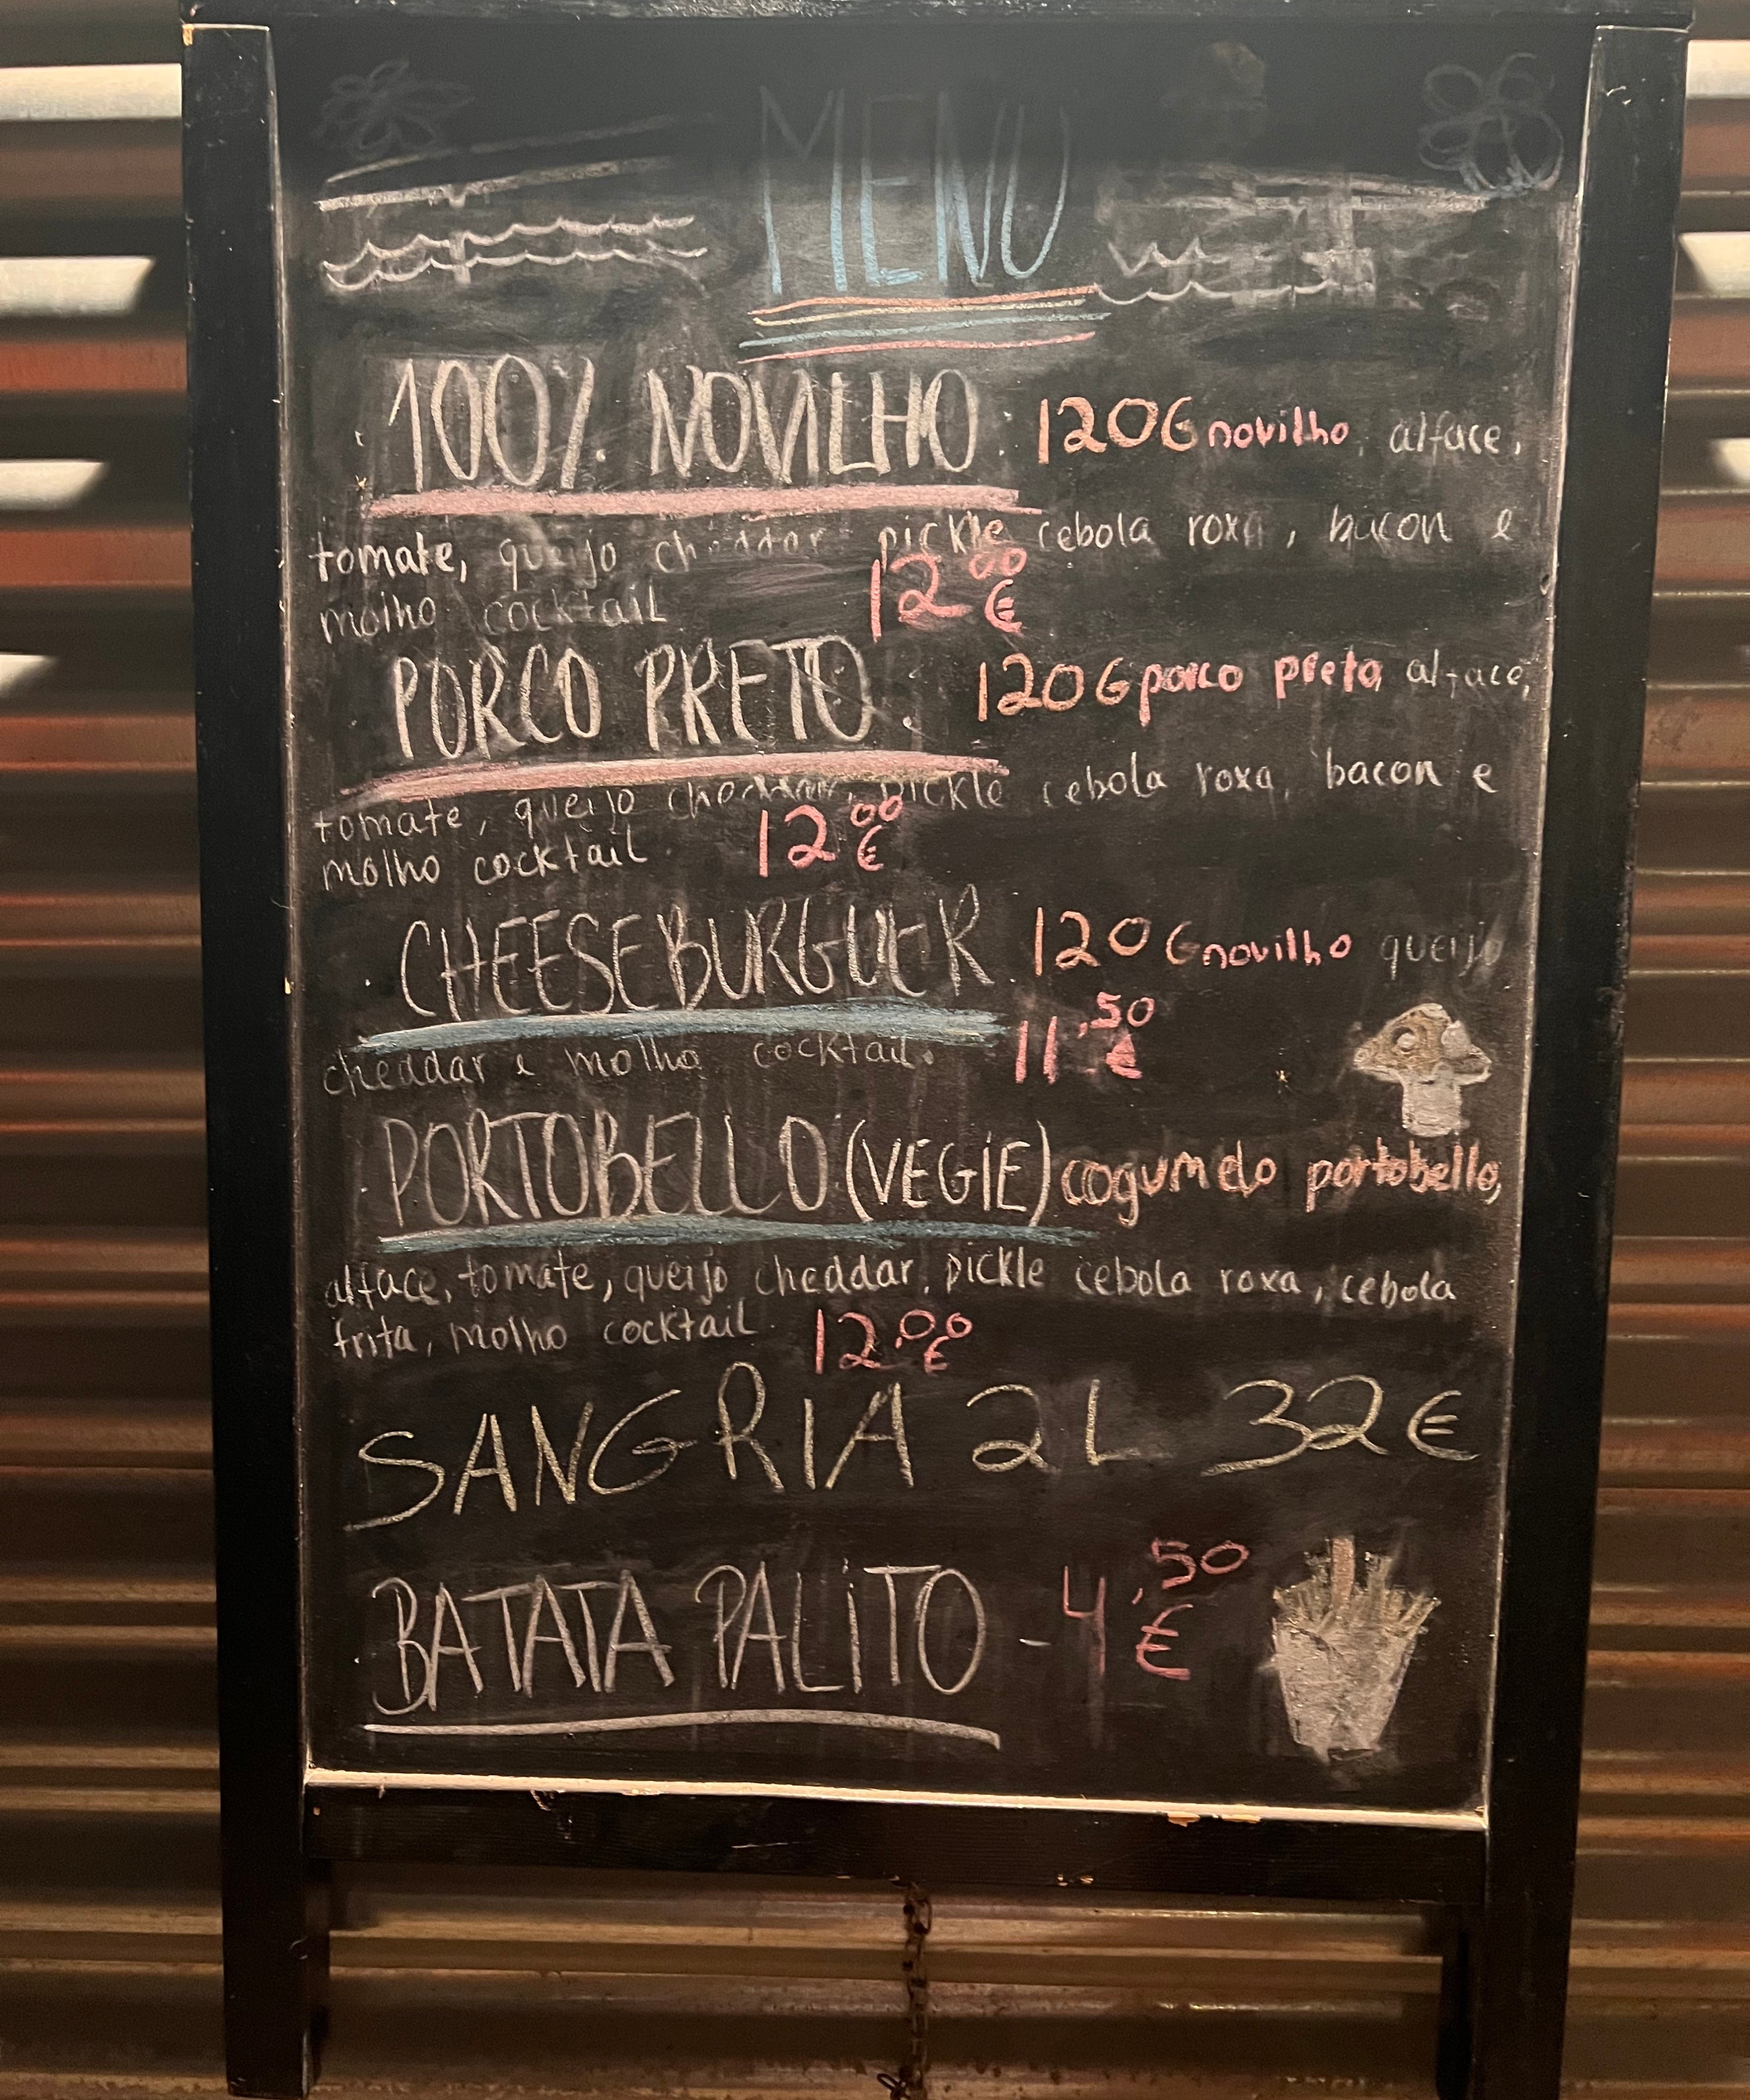 MENU
100% NOVILHO. 120G novilho, alface,
tomate, queijo cheddar pickle cebola roxa, bacon e
molho cocktail 12,00€
PORCO PRETO. 120G porco preto, alface,
tomate, queijo cheddar, pickle cebola roxa, bacon e
molho cocktail. 12,00€
CHEESEBURGUER. 120G novilho queijo
cheddar e molho cocktail. 11,50€
PORTOBELLO (VEGIE) cogumelo portobello,
alface, tomate, queijo cheddar, pickle cebola roxa, cebola
frita, molho cocktail. 12,00€
SANGRIA 2L 32€
BATATA PALITO - 4,50€